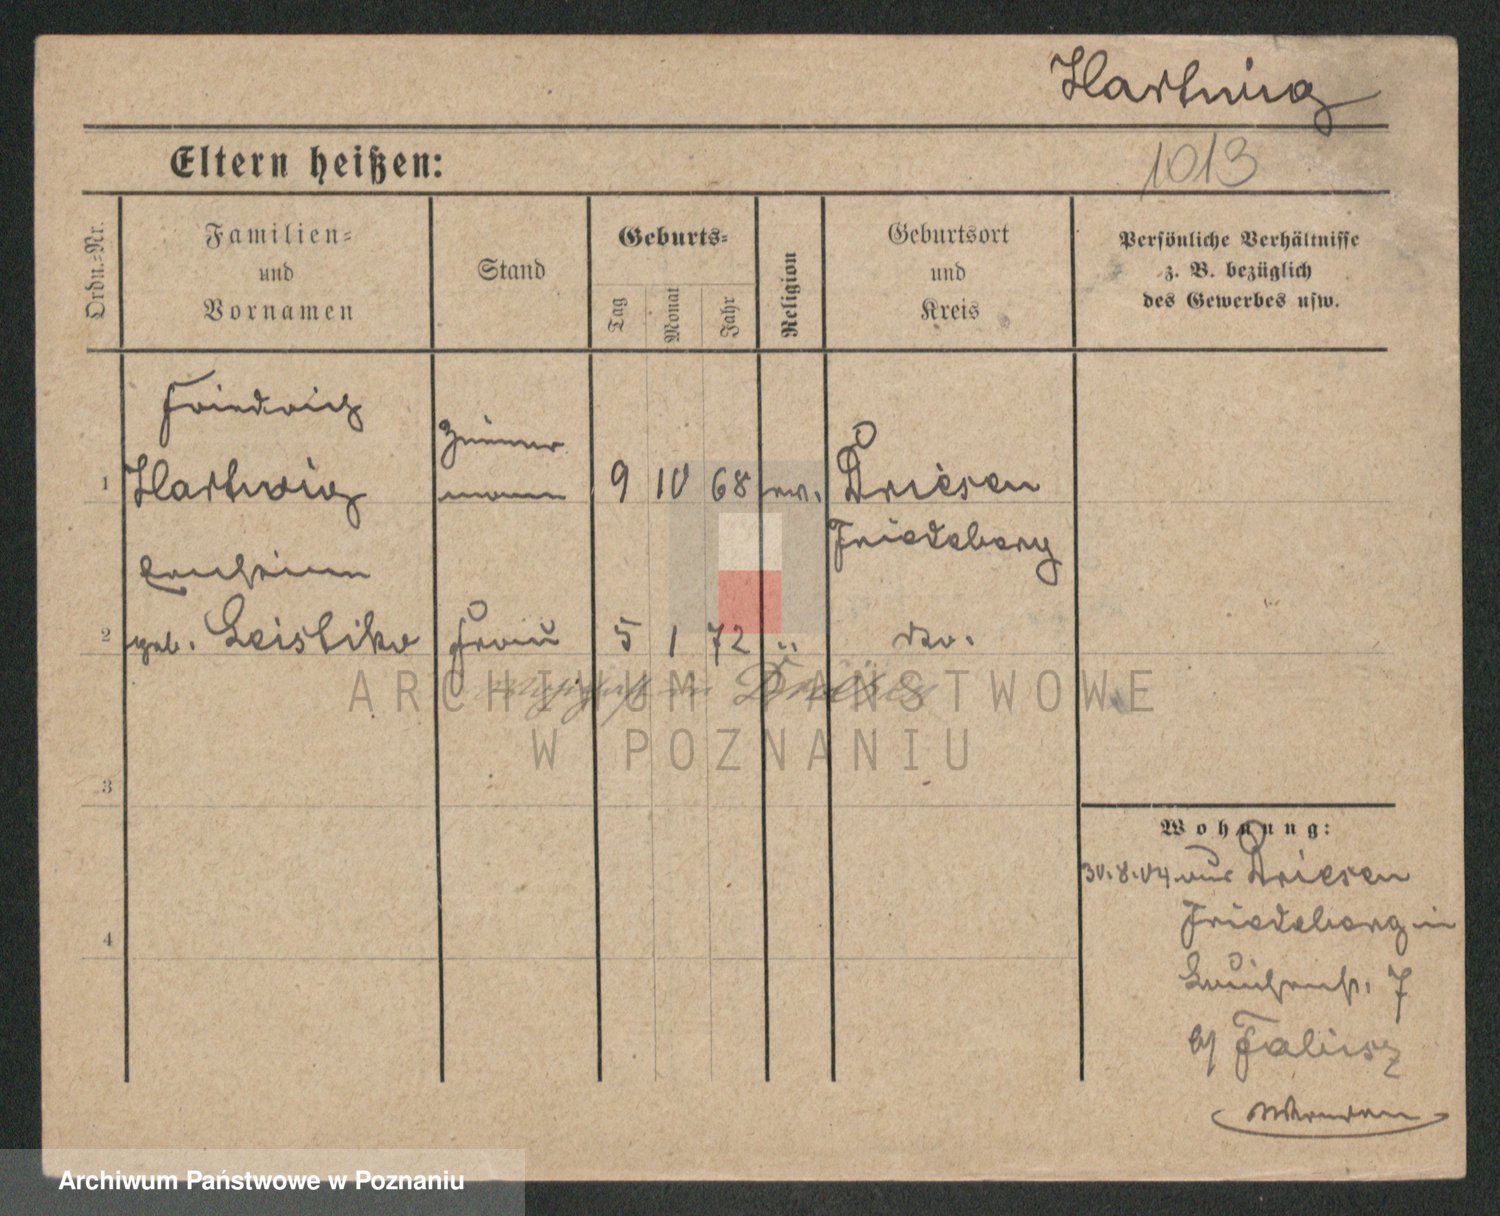 Hartwig
1013
Eltern heißen:
Ordn.-Nr.
Familien-
und
Vornamen
Stand
Geburts-
Tag
Monat
Jahr
Religion
Geburtsort
und
Kreis
Persönliche Verhältnisse
z. B. bezüglich
des Gewerbes usw.
Friedrich
Zimmer
1 Hartwig mann 9 10 68 ev. Driesen
Friedeberg
2 geb. Leistiko Frau 5 1 72 " do.
Driesen
ARCHIWUM PAŃSTWOWE
W POZNANIU
3
Wohnung:
30.8.04 aus Driesen
Friedeberg in
4
Luisenstr. 7
b/ Falisz
Archiwum Państwowe w Poznaniu